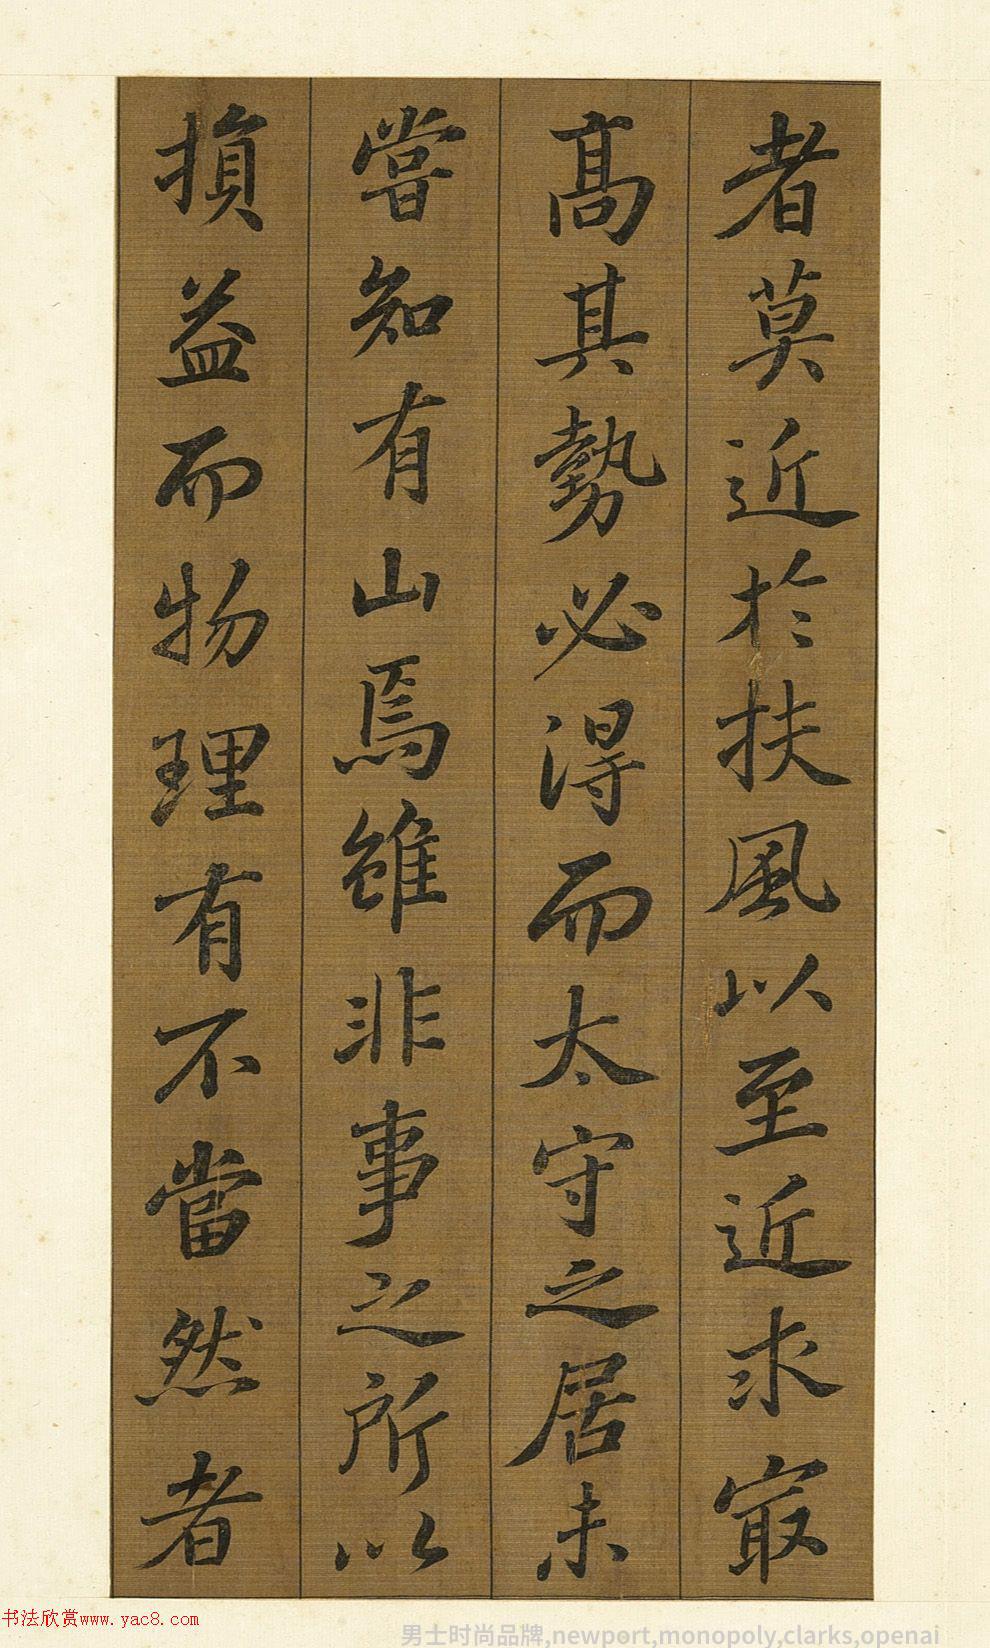 者莫近於扶風以至近求㝡
髙其勢必得而太守之居未
嘗知有山焉雖非事之所以
損益而物理有不當然者
书法欣赏www.yac8.com
男士时尚品牌,newport,monopoly,clarks,openai